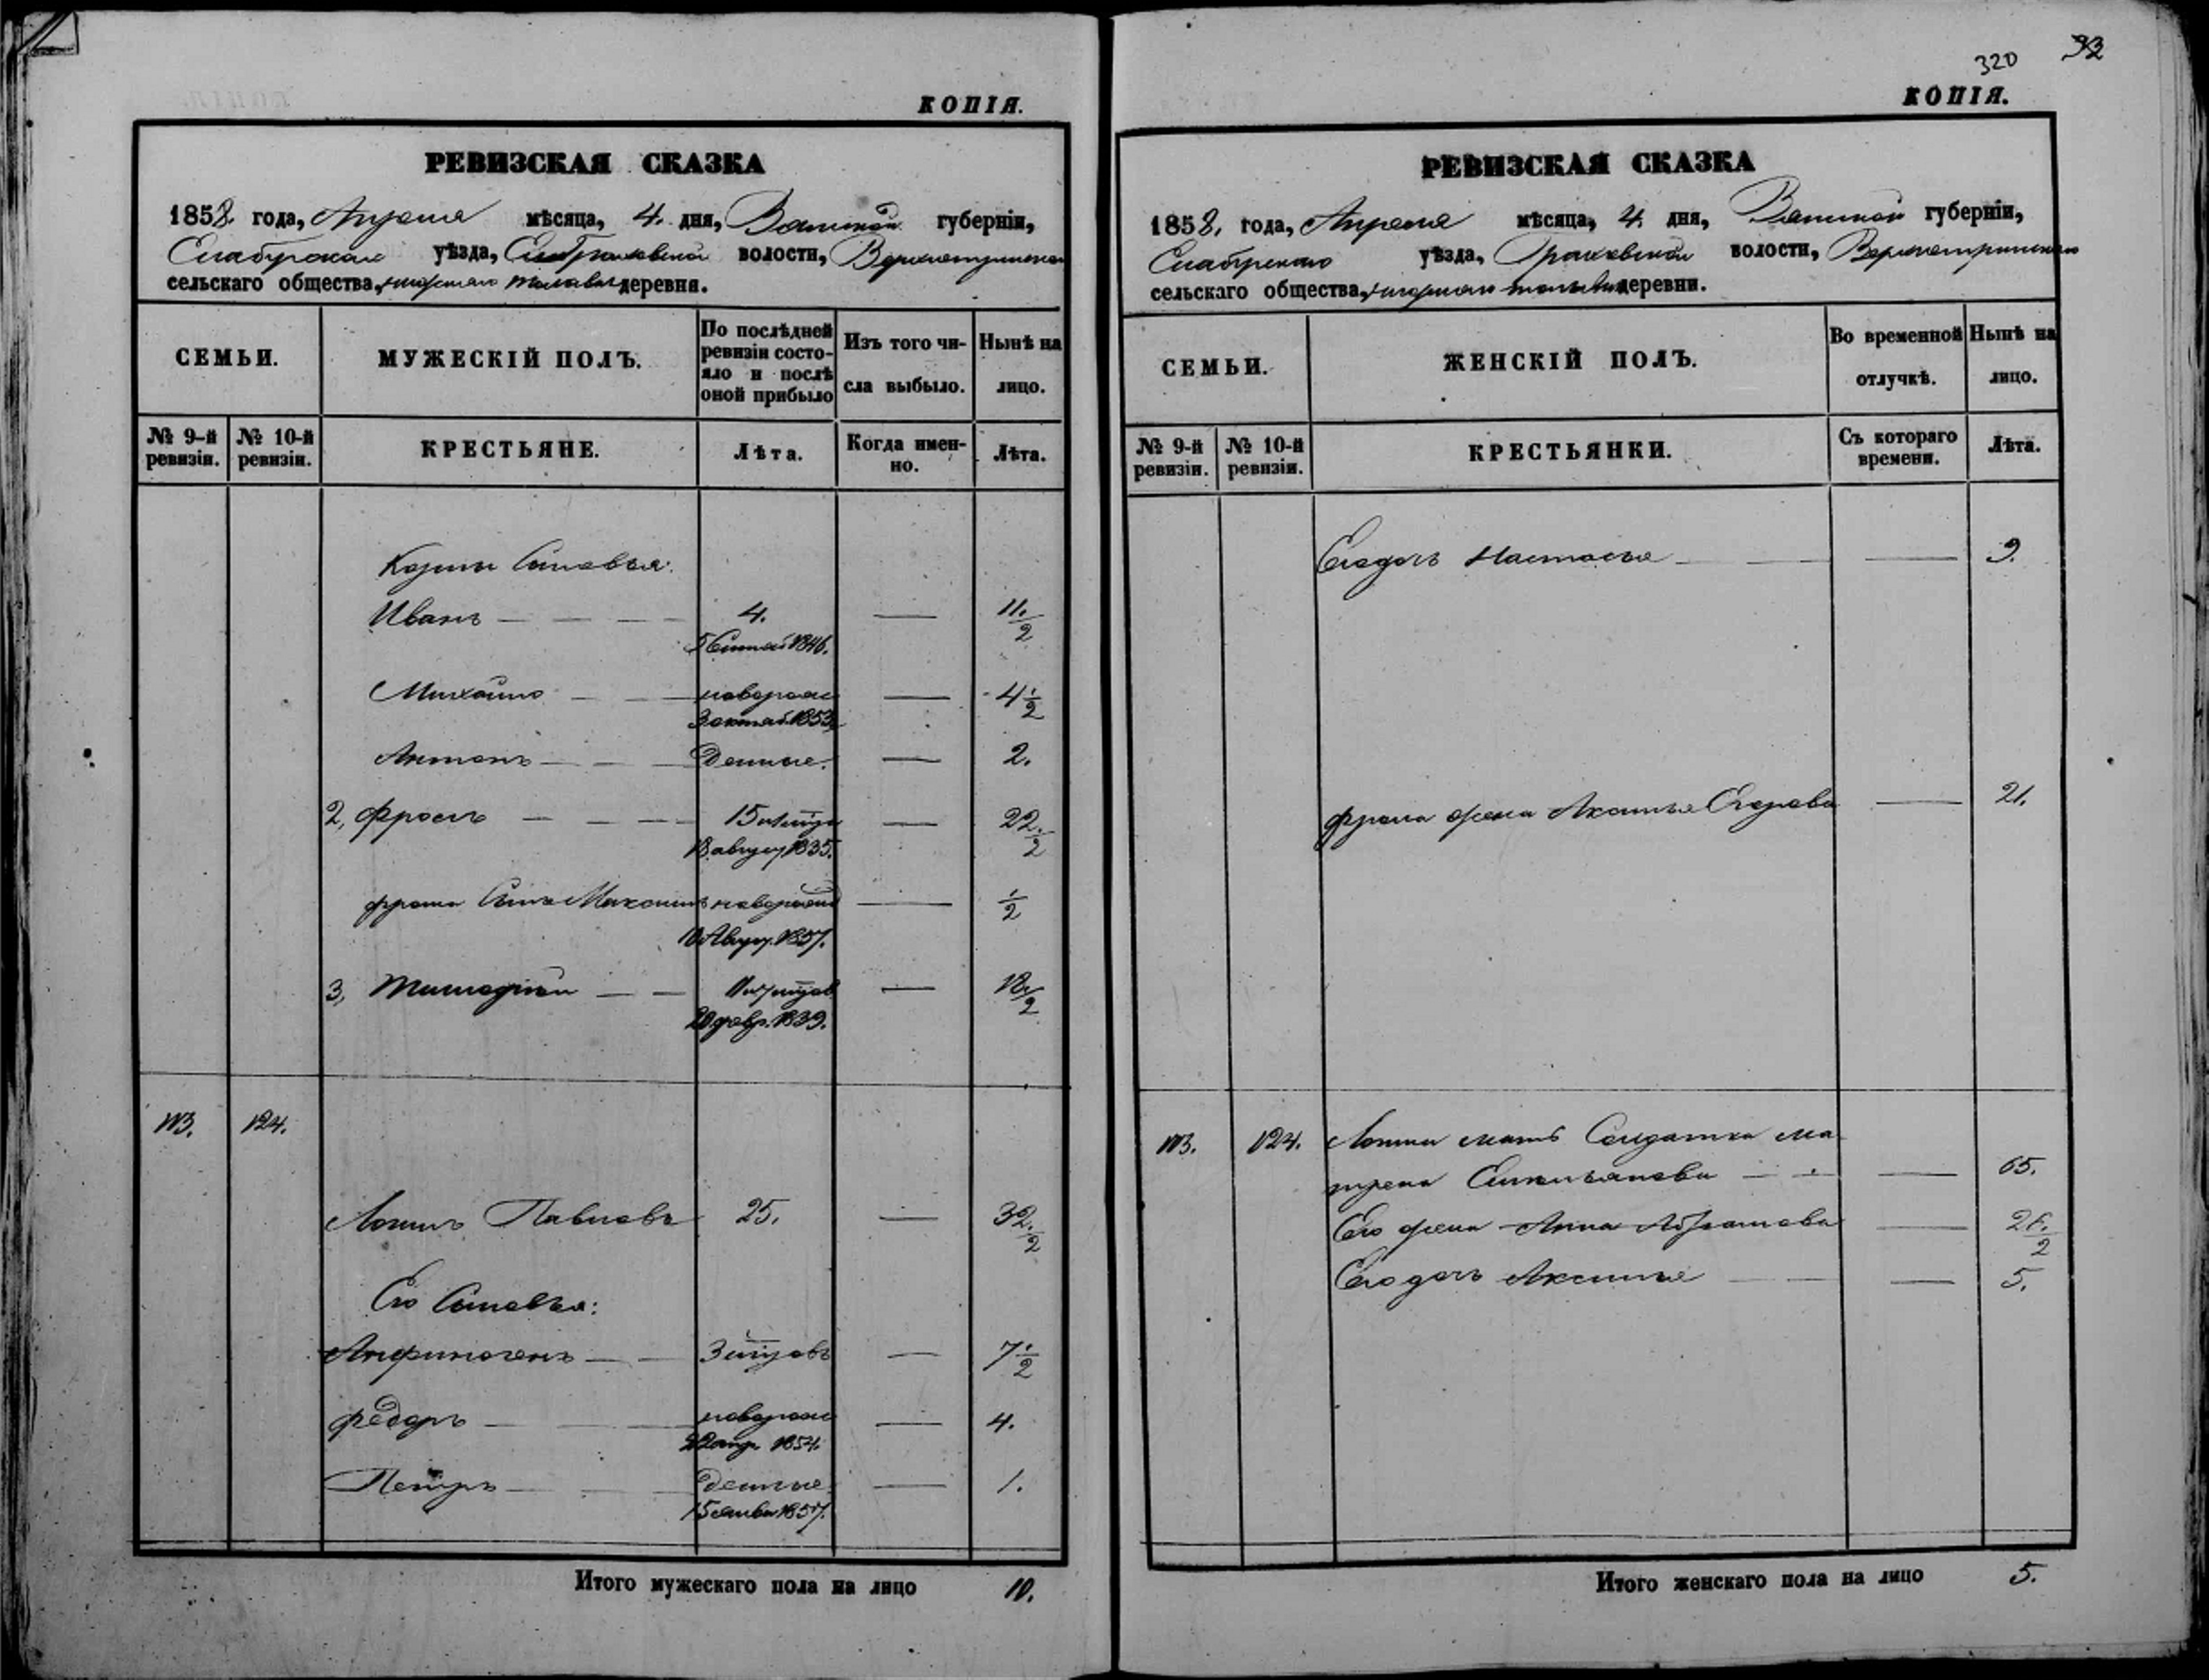 КОПІЯ.
РЕВИЗСКАЯ СКАЗКА
1858. года, Апреля мѣсяца, 4. дня, Вятской губерніи,
Елабужскаго уѣзда, волости,
сельскаго общества, деревня.
СЕМЬИ.
МУЖЕСКІЙ ПОЛЪ.
По послѣдней
ревизіи состо-
яло и послѣ
оной прибыло
Изъ того чи-
сла выбыло.
Нынѣ на
лицо.
№ 9-й
ревизіи.
№ 10-й
ревизіи.
КРЕСТЬЯНЕ.
Лѣта.
Когда имен-
но.
Лѣта.
Козмы Сыновья:
Иванъ — — — — 4. — 11 1/2
1846.
Михайло — — новорожд — 4 1/2
3 октяб. 1853
Антонъ — — — 2.
2, Фролъ — — — — 15 — 22 1/2
18 август 1835.
Фрола Сынъ Максимъ новорожд — 1/2
10 Август. 1857.
3, Тимофей — — — 18 1/2
20 февр. 1839.
113. 124.
Логинъ Павловъ 25. — 32 1/2
Его Сыновья:
Анфиногенъ — — 3 — 7 1/2
Федоръ — — новорожд — 4.
1854.
Петръ — — — 1.
15 янвы 1857.
Итого мужескаго пола на лицо 10.
320 32
КОПІЯ.
РЕВИЗСКАЯ СКАЗКА
1858. года, Апреля мѣсяца, 4. дня, Вятской губерніи,
Елабужскаго уѣзда, волости,
сельскаго общества, деревни.
СЕМЬИ.
ЖЕНСКІЙ ПОЛЪ.
Во временной
отлучкѣ.
Нынѣ на
лицо.
№ 9-й
ревизіи.
№ 10-й
ревизіи.
КРЕСТЬЯНКИ.
Съ котораго
времени.
Лѣта.
Его дочь Настасья — — — 9.
Фрола жена Аксинья Егорова — 21.
113. 124. Логина мать Солдатка Ма
трена Емельянова — — — 65.
Его жена Анна Абрамова — 26 1/2
Его дочь Аксинья — — — 5.
Итого женскаго пола на лицо 5.